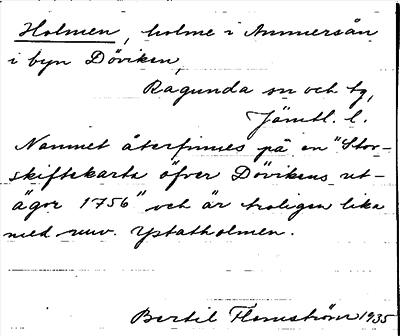 Holmen, holme i Ammerån
i byn Döviken,
Ragunda sn och tg,
Jämtl. l.
Namnet återfinnes på en "Stor-
skiftskarta öfver Dövikens ut-
ägor 1756" och är troligen lika
med nuv. Ystatholmen.
Bertil Flemström 1935